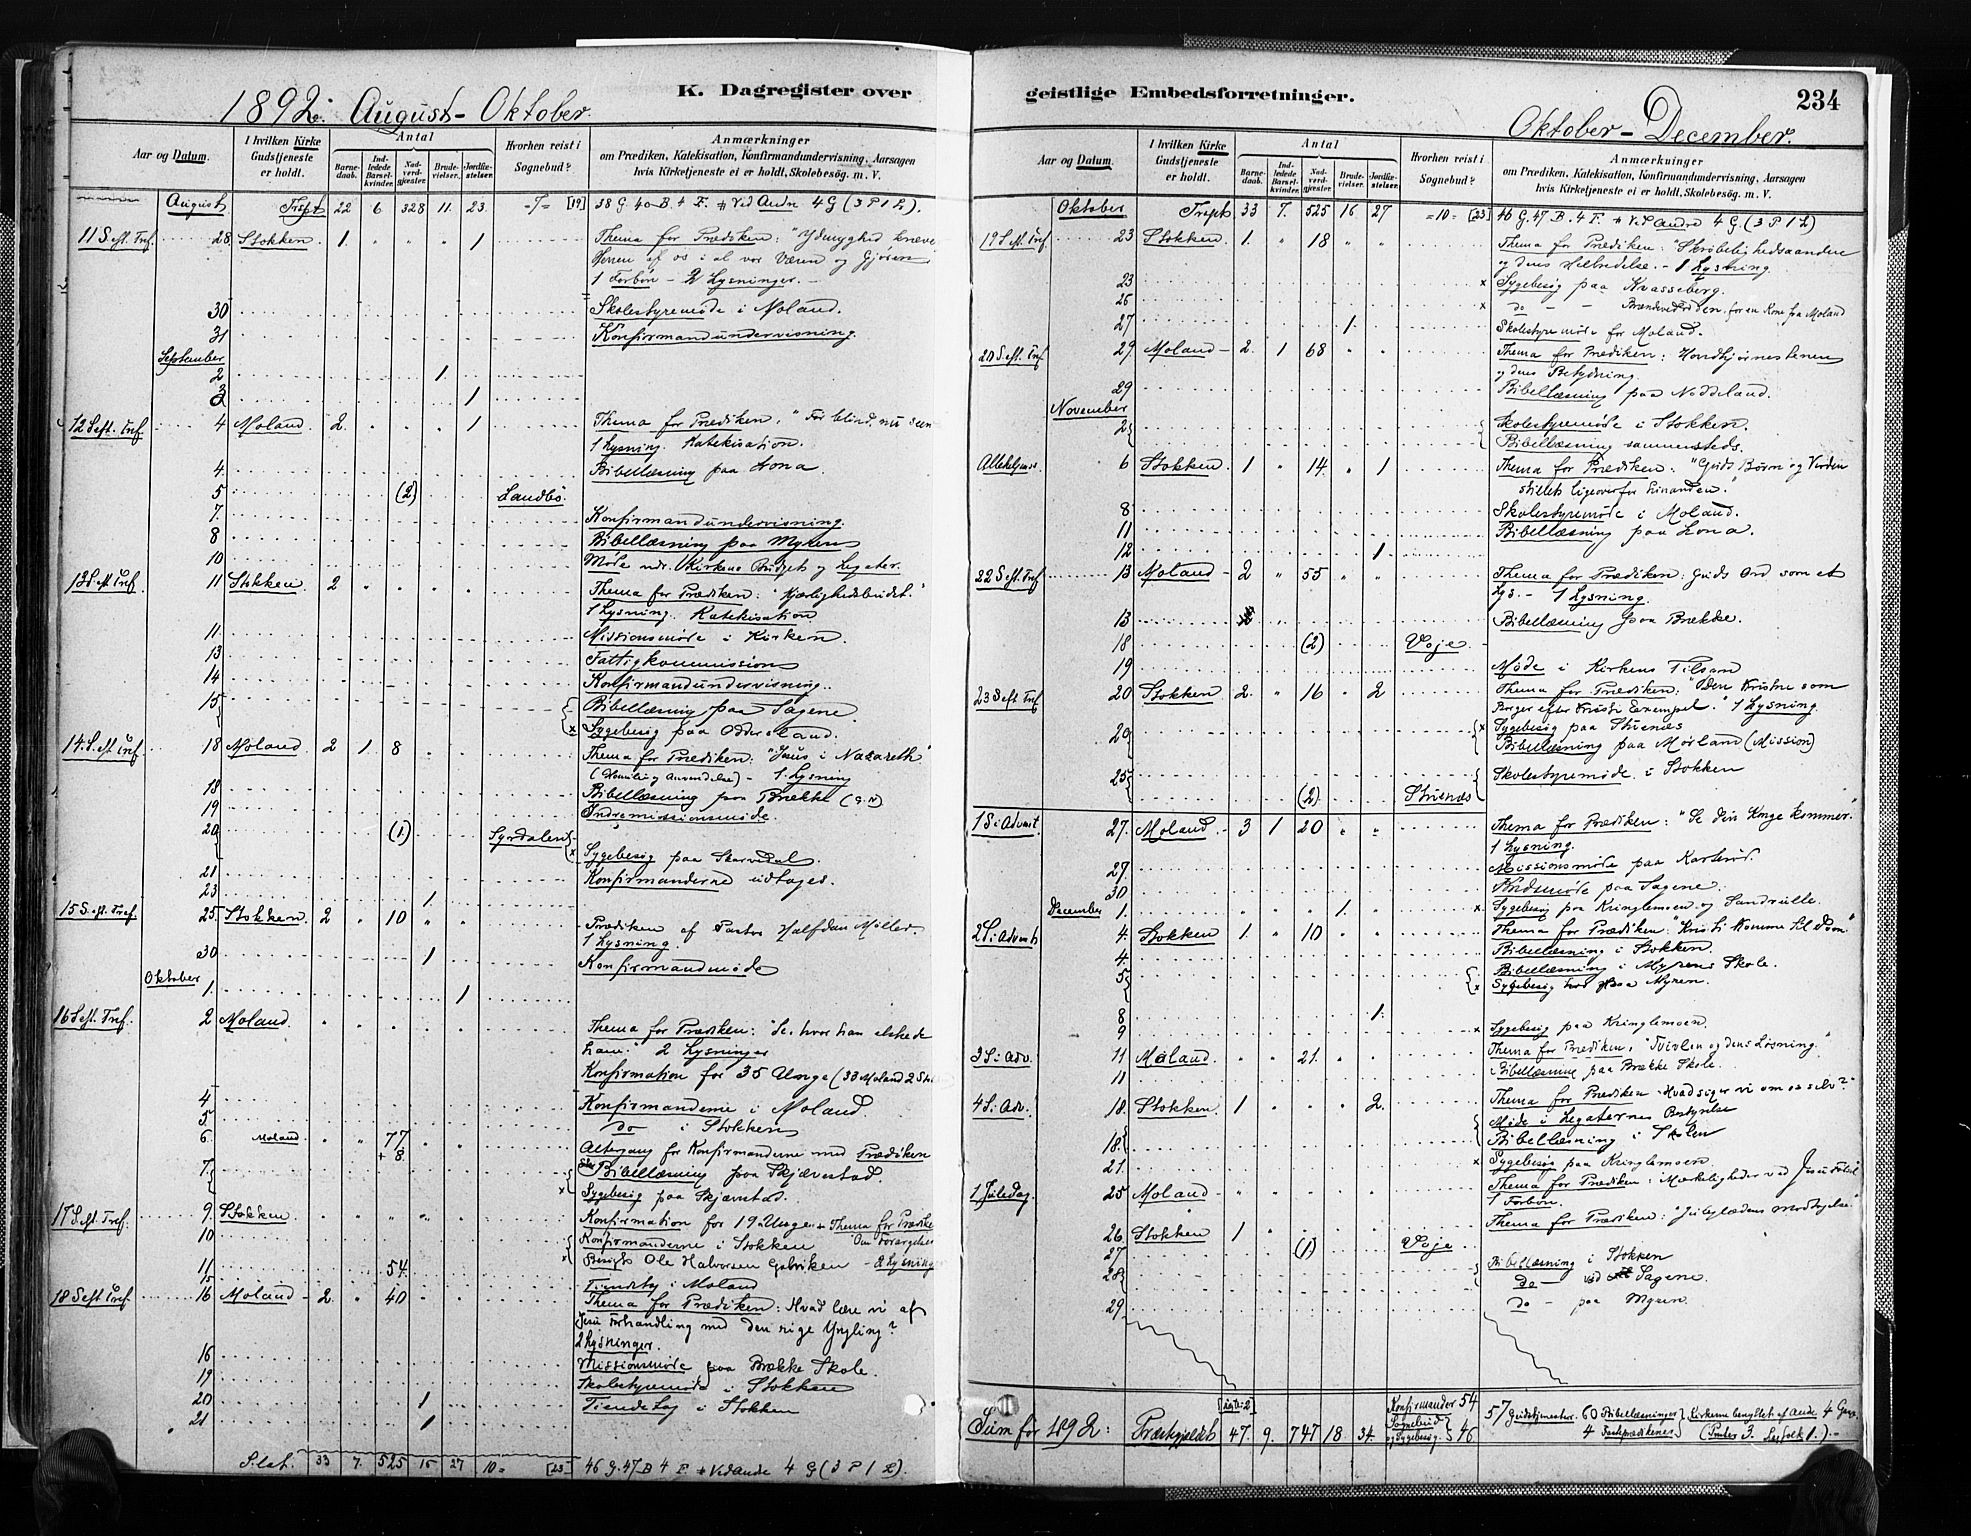 K. Dagregister over
1892. August - Oktober.
Aar og Datum.
I hvilken Kirke Gudstjeneste er holdt.
Antal
Barne-daab.
Ind-ledede Barsel-kvinder.
Nad-verd-gjester.
Brude-vielser.
Jordfæ-stelser.
Hvorhen reist i Sognebud?
Anmærkninger
om Prædiken, Katekisation, Konfirmandundervisning, Aarsagen
hvis Kirketjeneste ei er holdt, Skolebesøg. m. V.
August Trspt 22 6 328 11 23 -7- [19] 38 G. 40 B. 4 F. Ved Andre 4 G (3 P 1 L).
11 S. eft. Tref. 28 Stokken 1 " " " 1 Thema for Prædiken: "Ydmyghed kræve
Herren af os i al vor Væren og Gjøren
1 Forbøn - 2 Lysninger. -
30 Skolestyremøde i Moland.
31 Konfirmandundervisning.
September
2 1
3 1
12 S. eft. Tref. 4 Moland 2 1 Thema for Prædiken: "Før blind, nu seen
1 Lysning. Katekisation.
4. Bibellæsning paa Lona.
5 (2) Landbø.
7. Konfirmandundervisning.
8 Bibellæsning paa Myren
10 Møde vdr. Kirkens Budget og Legater.
13 S. eft. Tref. 11 Stokken 2 Thema for Prædiken: "Kjærlighedsbudet."
1 Lysning. Katekisation
11. Missionsmøde i Kirken.
13 Fattigkommission
14 Konfirmandundervisning.
15 Bibellæsning paa Sagene.
x Sygebesøg paa
14. S. eft. Tref. 18 Moland 2 1 8 Thema for Prædiken: "Jesus i Nazareth"
- 1 Lysning
18 Bibellæsning paa Brække
19 Indremissionsmøde.
20 (1) Syrdalen
x Sygebesøg paa Skarvedal.
21 Konfirmanderne udtages.
23 1
15 S. eft. Tref. 25 Stokken 2 " 10 " " Prædiken af Pastor Halfdan Møller
1 Lysning
30 1 Konfirmandmøde
Oktober
1. 1
16 S. eft. Tref. 2 Moland Thema for Prædiken: "Se, hvor han elskede
ham." 2 Lysninger
Konfirmation for 35 Unge (33 Moland 2
4 Konfirmanderne i Moland.
5. do i Stokken
6. Moland 77
+ 8. Altergang for Konfirmanderne med Prædiken
7. Bibellæsning paa Skjævestad.
x Sygebesøg paa Skjævestad.
17 S. eft. Tref. 9. Stokken Konfirmation for 19 Unge. Thema for Prædike
10 Konfirmanderne i Stokken Om Forargelse
x Besøgt Ole Halvorsen - 2 Lysninger
11 54
15 Tiendetag i Moland
18 S. eft. Tref. 16 Moland 2. " 40 Thema for Prædiken: Hvad lære vi af
Jesu Forhandling med den rige Yngling?
2 Lysninger.
16 Missionsmøde paa Brække Skole.
19 Skolestyremøde i Stokken
20 1 Tiendetag i Stokken
21 1
Slat. 33 7. 525 15 27 10= [23] 46 G. 47 B 4 F. Ved Ande 4 G (3 P 1 L).
geistlige Embedsforretninger.
234
Oktober - December.
Aar og Datum.
I hvilken Kirke Gudstjeneste er holdt.
Antal
Barne-daab.
Ind-ledede Barsel-kvinder.
Nad-verd-gjester.
Brude-vielser.
Jordfæ-stelser.
Hvorhen reist i Sognebud?
Anmærkninger
om Prædiken, Katekisation, Konfirmandundervisning, Aarsagen
hvis Kirketjeneste ei er holdt, Skolebesøg. m. V.
Oktober Trspt 33 7. 525 16 27 =10= [23] 46 G. 47 B. 4 F. Ved Andre 4 G (3 P 1 L)
19 S. eft. Tref. 23 Stokken 1. " 18 " " Thema for Prædiken: "Skrøbelighedsaanden
og dens Helbredelse. - 1 Lysning
23 x Sygebesøg paa Kvasseberg.
26 x do - for en Kone fra Moland
27 1. Skolestyremøde for Moland.
20 S. eft. Tref. 29 Moland - 2. 1 68 Thema for Prædiken: Hovedhjørnestenen
og dens Betydning
29 Bibellæsning paa Nødeland.
November
2 Skolestyremøde i Stokken.
Bibellæsning sammesteds.
Allehelgens 6 Stokken 1 " 14 " 1 Thema for Prædiken: "Guds Børn og Verden
stillet ligeoverfor hinanden."
8 Skolestyremøde i Moland.
11 Bibellæsning paa Lona.
12 1
22 S. eft. Tref. 13 Moland - 2 " 55 " " Thema for Prædiken: Guds Ord som et
Lys. - 1 Lysning.
13 Bibellæsning paa Brække.
18 (2) Voje
19 Møde i Kirkens Tilsyn
23 S. eft. Tref. 20 Stokken 2. " 16 " 2 Thema for Prædiken: "Den Kristne som
Borger efter Kristi Exempel." 1 Lysning
20 x Sygebesøg paa Strienæs
Bibellæsning paa Mørland (Mission)
25 Skolestyremøde i Stokken
(2) Strienæs
1 S. i Advent. 27. Moland - 3 1 20 " " Thema for Prædiken: "Se din Konge kommer."
1 Lysning.
27. Missionsmøde paa
30 paa Sagene.
December 1. 1. x Sygebesøg paa Kringlemoen og
2 S. i Advent 4. Stokken 1. " 10 " " Thema for Prædiken: "Kristi Komme til Dom"
4. Bibellæsning i Stokken.
5 Bibellæsning i Myrens Skole.
x Sygebesøg paa Myren.
8 1.
9 x Sygebesøg paa Kringlemoen
3 S. i Adv. 11 Moland " " 21. Thema for Prædiken: "Tvivlen og dens Løsning."
11 Bibellæsning paa Brække Skole.
4 S. i Adv. 18. Stokken 1 2. Thema for Prædiken. Hvad siger vi om os selv?"
Møde i Legaternes Bestyrelse
18. Bibellæsning i Skolen
21. x Sygebesøg paa Kringlemoen.
1 Juledag. 25 Moland - Thema for Prædiken: Mærkeligheder ved Jesu Fødsel
1 Forbøn.
26 Stokken 1 Thema for Prædiken: "Juleglædens
27 (1) Voje
28 Bibellæsning i Stokken
do - ved Sagene.
29. do - paa Myren.
Sum for 1892: Præstgjeldet 47. 9. 747 18. 34. Konfirmander 54
Sognebud og Sygebesøg 46. 57 Gudstjenester. 60 Bibellæsninger Kirkerne benyttet af Andre 4 Gange
4 Fastepredikener (Prester 3. Lægfolk 1.) -